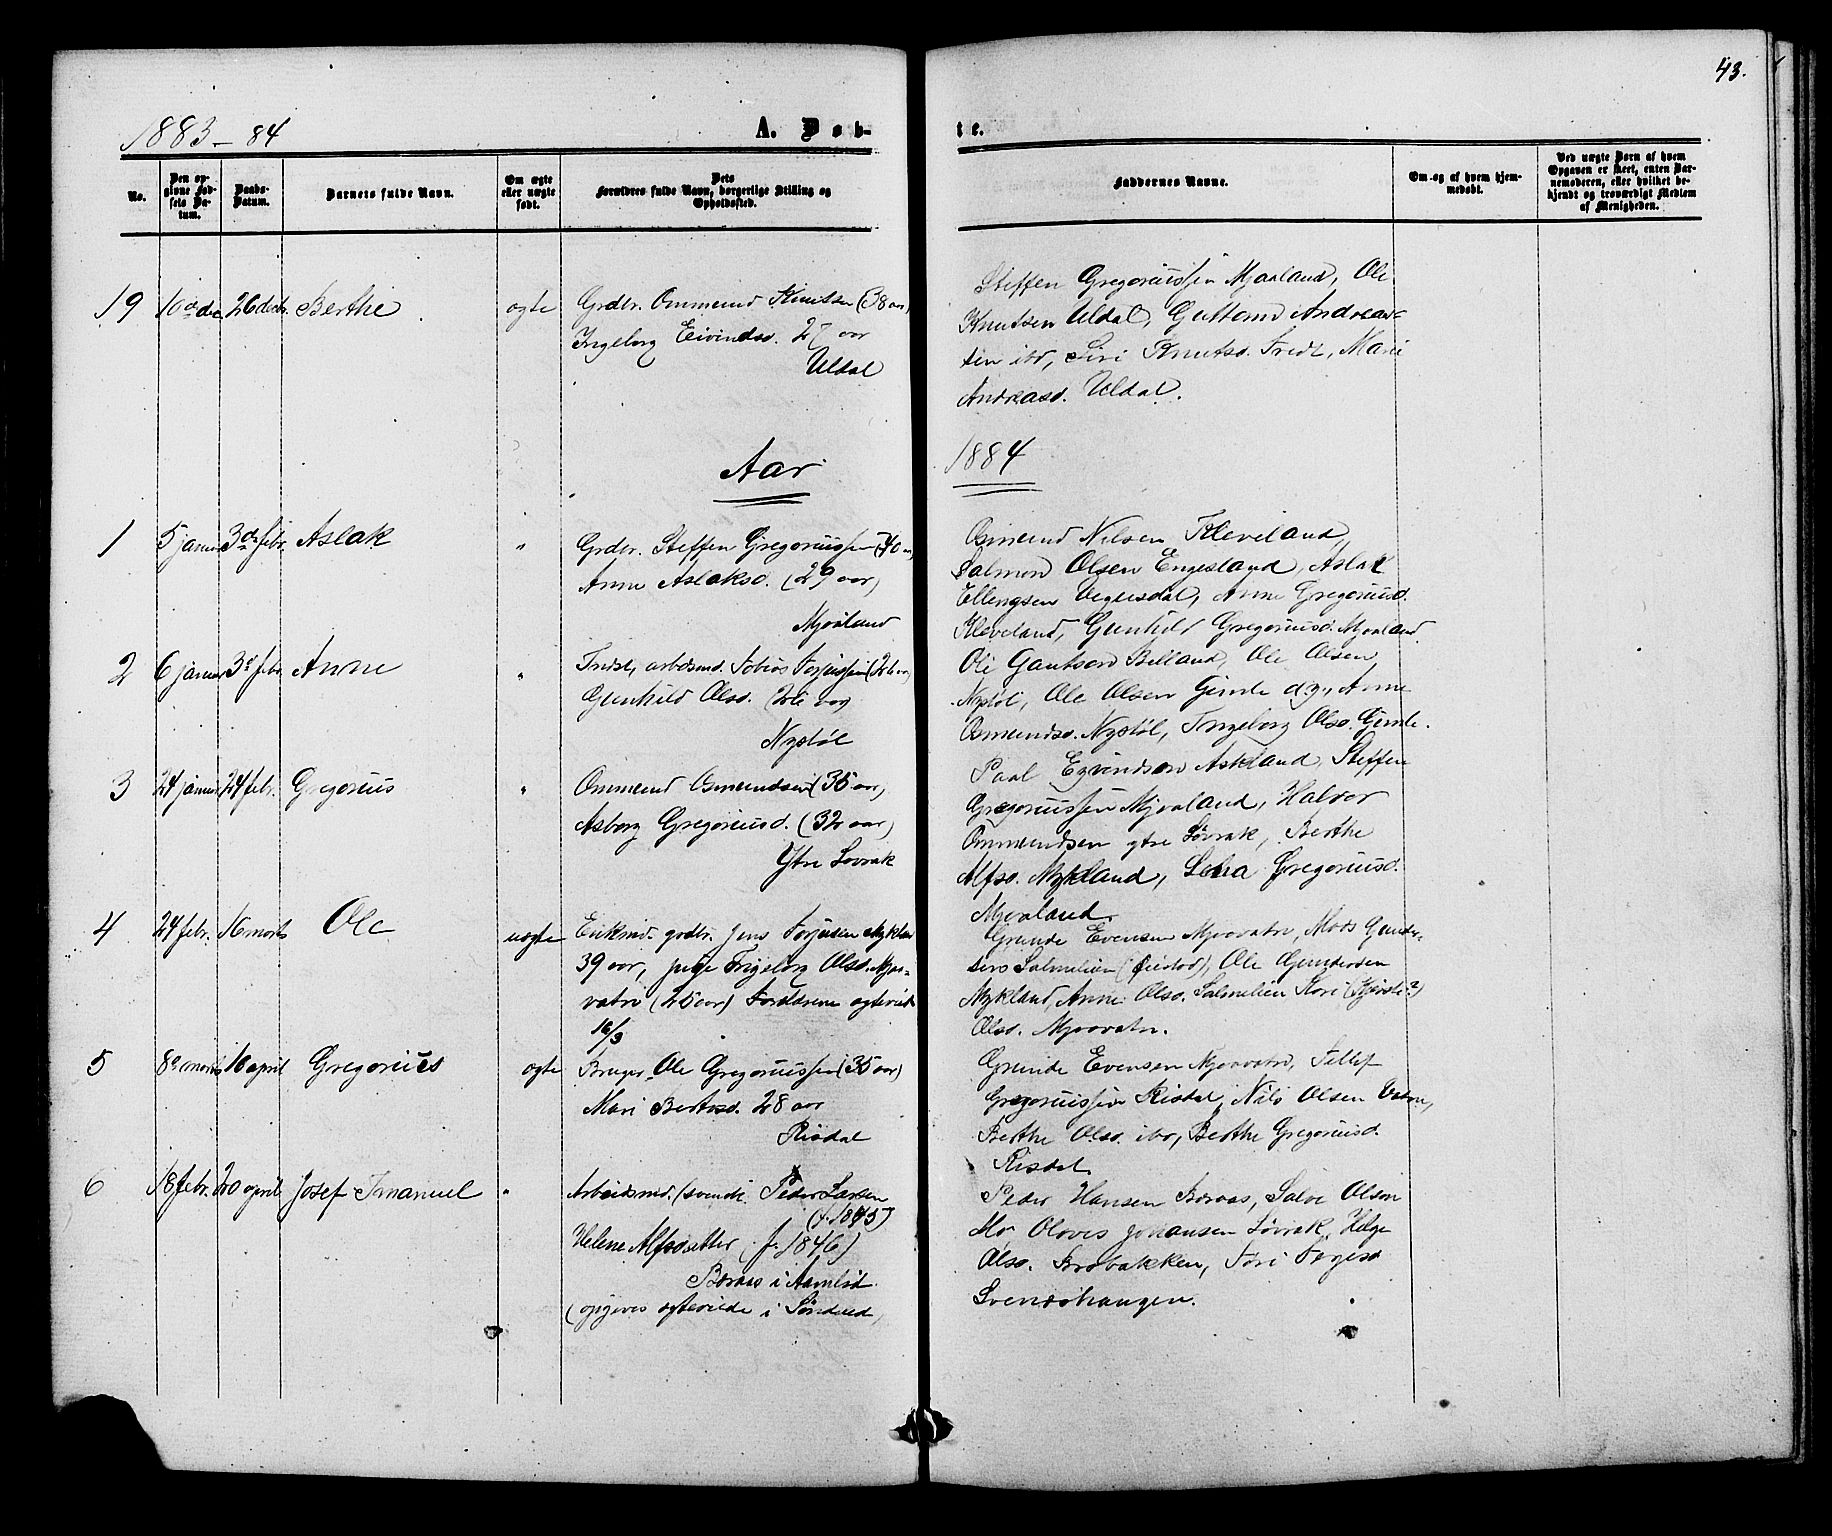 43.
1883-84
A. Døb-
te.
No.
Den op-
givne Fød-
sels Da-
tum.
Daabs-
Datum.
Barnets fulde Navn.
Om ægte
eller uægte
født.
Dets
Forældres fulde Navn, borgerlige Stilling og
Opholdssted.
Faddernes Navne.
Om og af hvem hjem-
medøbt.
Ved uægte Børn af hvem
Opgaven er skeet, enten Bar-
nemoderen, eller hvilket be-
kjendt og troværdigt Medlem
af Menigheden.
19 10de dec 26 decbr. Berthe ægte
Grdbr. Ommund Knutsen (38 aar)
Ingeborg Eivindsd. 27 aar
Uldal
Steffen Gregoriussen Mjaaland, Ole
Knutsen Uldal, Guttorm Andreas-
sen ibd, Siri Knutsd. Trede, Marie
Andreasd. Uldal.
Aar
1884
1 5 januar 3de febr. Aslak "
Grdbr. Steffen Gregoriussen (40 aar)
Anne Aslaksd. (29 aar)
Mjaaland
Osmund Nilsen Kleveland,
Salmon Olsen Engesland, Aslak
Ellingsen Vegusdal, Anne Gregoriusd.
Kleveland, Gunhild Gregoriusd. Mjaaland.
2 6 januar 3d febr. Anne "
Inds., arbeidsmd. Tobias Terjussen (26 aar)
Gunhild Olsd. (26 aar)
Nystøl
Ole Gautson Belland, Ole Olsen
Nystøl, Ole Olsen Gimle d.y., Anne
Osmundsd. Nystøl, Ingeborg Olsd. Gimle.
3 24 januar 24 febr. Gregorius "
Ommund Osmundsen (35 aar)
Asborg Gregoriusd. (32 aar)
Ytre Lovrak
Paal Eyvindson Askland, Steffen
Gregoriussen Mjaaland, Halvor
Ommundsen ytre Løvrak, Berthe
Alfsd. Mykland, Lena Gregoriusd.
Mjaaland.
4 24 febr. 16 marts Ole uægte
Enkemd. grdbr. Jens Terjusen Mykland
39 aar, pige Ingeborg Olsd. Mjaa-
vatn (25 aar) Forældrene ægteviede
16/3
Grunde Evensen Mjaavatn, Mads Gunder-
sens Salmelien (Fiestad), Ole Gundersen
Mykland, Anne Olsd. Salmelien Kari (Kjersti?)
Olsd. Mjaavatn.
5 8de marts 16 april Gregorius ægte
Bruger Ole Gregoriussen (35 aar)
Mari Bertesd. 28 aar
Risdal
Grunde Evensen Mjaavatn, Tellef
Gregoriussen Risdal, Nils Olsen Vatne,
Berthe Olsd. ibd, Berthe Gregoriusd.
Risdal
6 18 febr. 20 april Josef Imanuel "
Arbeidsmd. (svensk) Peder Larsen
(f. 1845)
Helene Alfsdatter (f. 1846)
Boraas i Aamlid
(opgives ægteviede i Søndeled)
Peder Hansen Boraas, Salve Olsen
Mo, Olaves Johansen Løvrak, Helge
Olsd. Brobakken, Tori Terjesd
Svendshaugen.